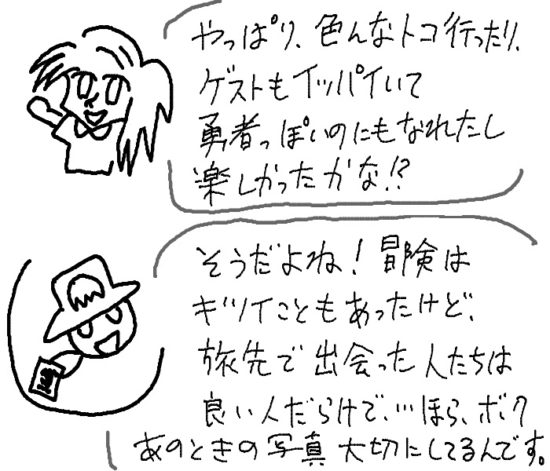 やっぱり、色んなトコ行ったり、
ゲストもイッパイいて
勇者っぽいのにもなれたし
楽しかったかな!?
そうだよね!冒険は
キツイこともあったけど、
旅先で出会った人たちは
良い人だらけで、…ほら、ボク
あのときの写真大切にしてるんです。